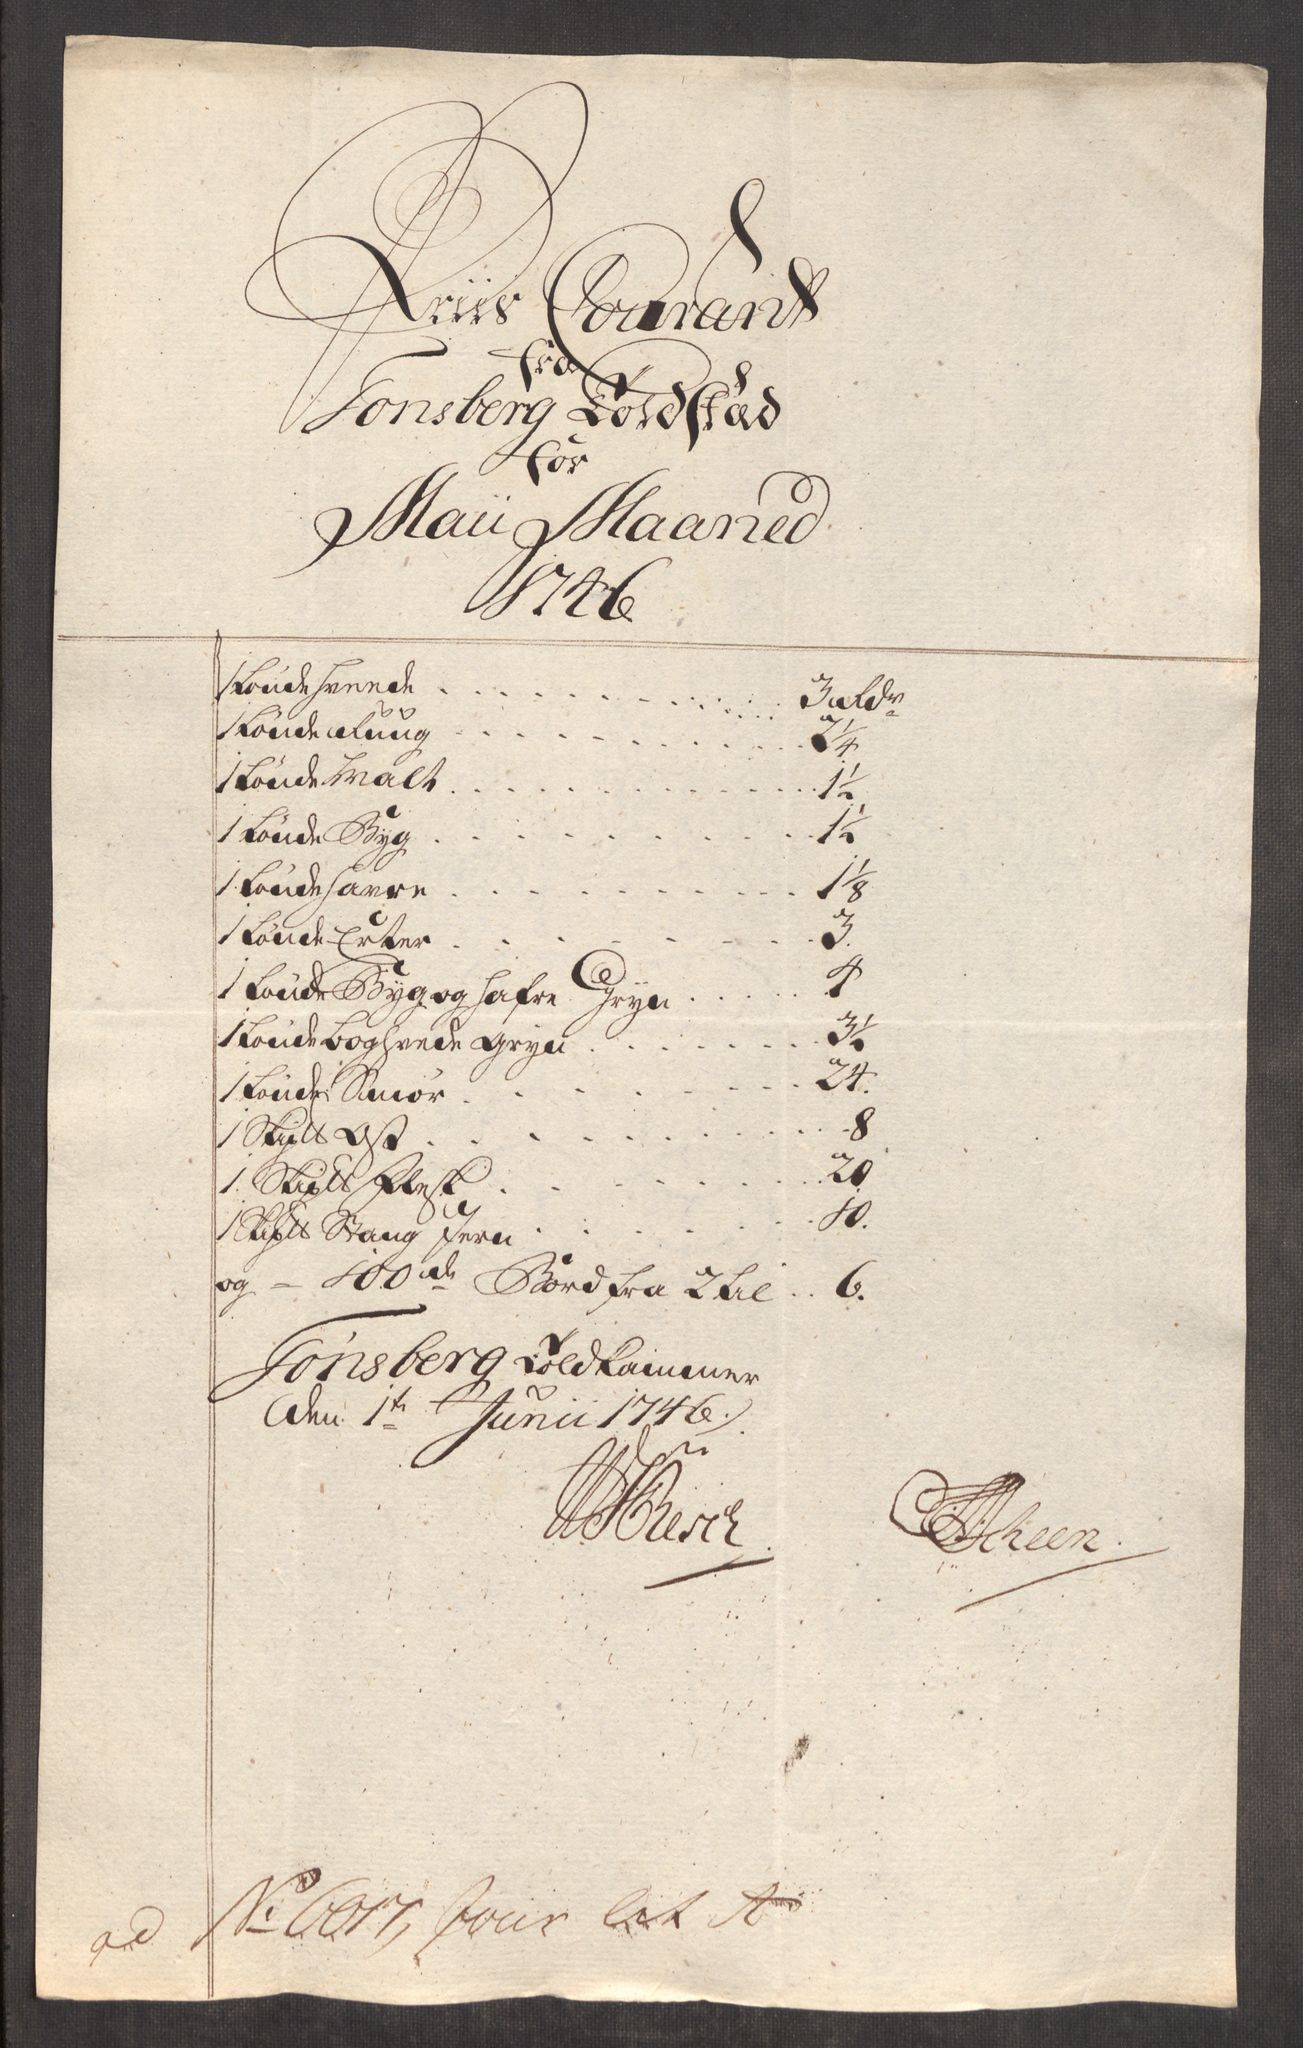 Priis Courant
fra
Tonsberg Toldstæd
for
Maii Maaned
1746
1 Tønde Hvede 3 Rdr
1 Tønde Rug 2 1/4
1 Tønde Malt 1 1/2
1 Tønde Byg 1 1/2
1 Tønde Havre 1 1/8
1 Tønde Erter 3
1 Tønde Byg og Hafre Gryn 4
1 Tønde boghvede Gryn 3 1/2
1 Tønde Smør 24
1 Skip℔ Ost 8
1 Skip℔ Flesk 20
1 Skip℔ Stang Jern 10
og - 100de Bord fra 2 til 6
Tønsberg Toldkammer
den 1te Junii 1746
Resch
Scheen
ad No lit A